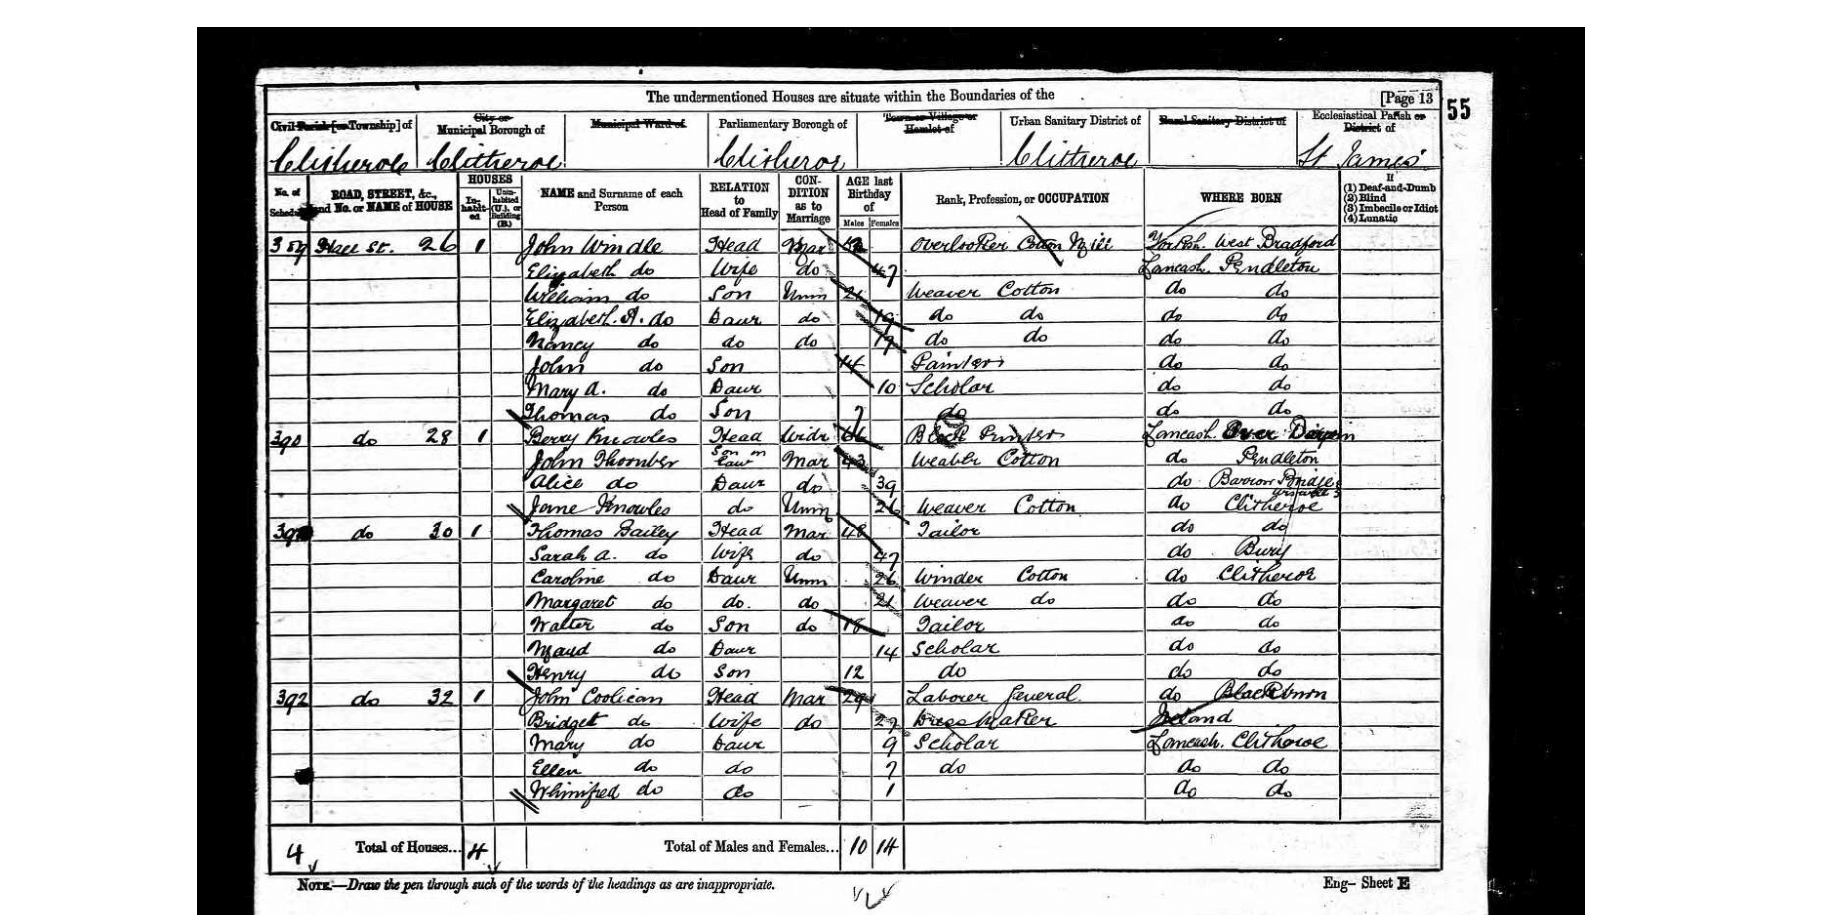 The undermentioned Houses are situate within the Boundaries of the [Page 13
55
Civil Parish [or Township] of City or Municipal Borough of Municipal Ward of Parliamentary Borough of Town or Village or Hamlet of Urban Sanitary District of Rural Sanitary District of Ecclesiastical Parish or District of
Clitheroe Clitheroe Clitheroe Clitheroe St James'
No. of Schedule ROAD, STREET, &c., and No. or NAME of HOUSE HOUSES Inhabited Uninhabited (U.), or Building (B.) NAME and Surname of each Person RELATION to Head of Family CONDITION as to Marriage AGE last Birthday of Males Females Rank, Profession, or OCCUPATION WHERE BORN If (1) Deaf-and-Dumb (2) Blind (3) Imbecile or Idiot (4) Lunatic
St. 26 1 John Windle Head Mar Overlooker Cotton Mill Yorksh. West Bradford
Elizabeth do Wife do 47 Lancash. Pendleton
William do Son Unm 21 Weaver Cotton do do
Elizabeth A. do Daur do 19 do do do do
Nancy do do do do do do do
John do Son 14 Painter do do
Mary A. do Daur 10 Scholar do do
Thomas do Son 7 do do do
390 do 28 1 Berry Knowles Head Widr 66 Block Printer Lancash. Over Darwen
John Thornber Son in Law Mar 43 Weaver Cotton do Pendleton
Alice do Daur do 39 do Barrow
Jane Knowles do Unm 26 Weaver Cotton do Clitheroe
do 30 1 Thomas Bailey Head Mar 48 Tailor do do
Sarah A. do Wife do 47 do Bury
Caroline do Daur Unm 26 Winder Cotton do Clitheroe
Margaret do do. do 21 Weaver do do do
Walter do Son do 18 Tailor do do
Maud do Daur 14 Scholar do do
Henry do Son 12 do do do
392 do 32 1 John Coolican Head Mar 29 Laborer General do Blackburn
Bridget do Wife do 27 Dress Maker Ireland
Mary do Daur 9 Scholar Lancash. Clitheroe
Ellen do do 7 do do do
Whinifred do do 1 do do
4 Total of Houses... 4 Total of Males and Females... 10 14
NOTE.—Draw the pen through such of the words of the headings as are inappropriate. Eng– Sheet E